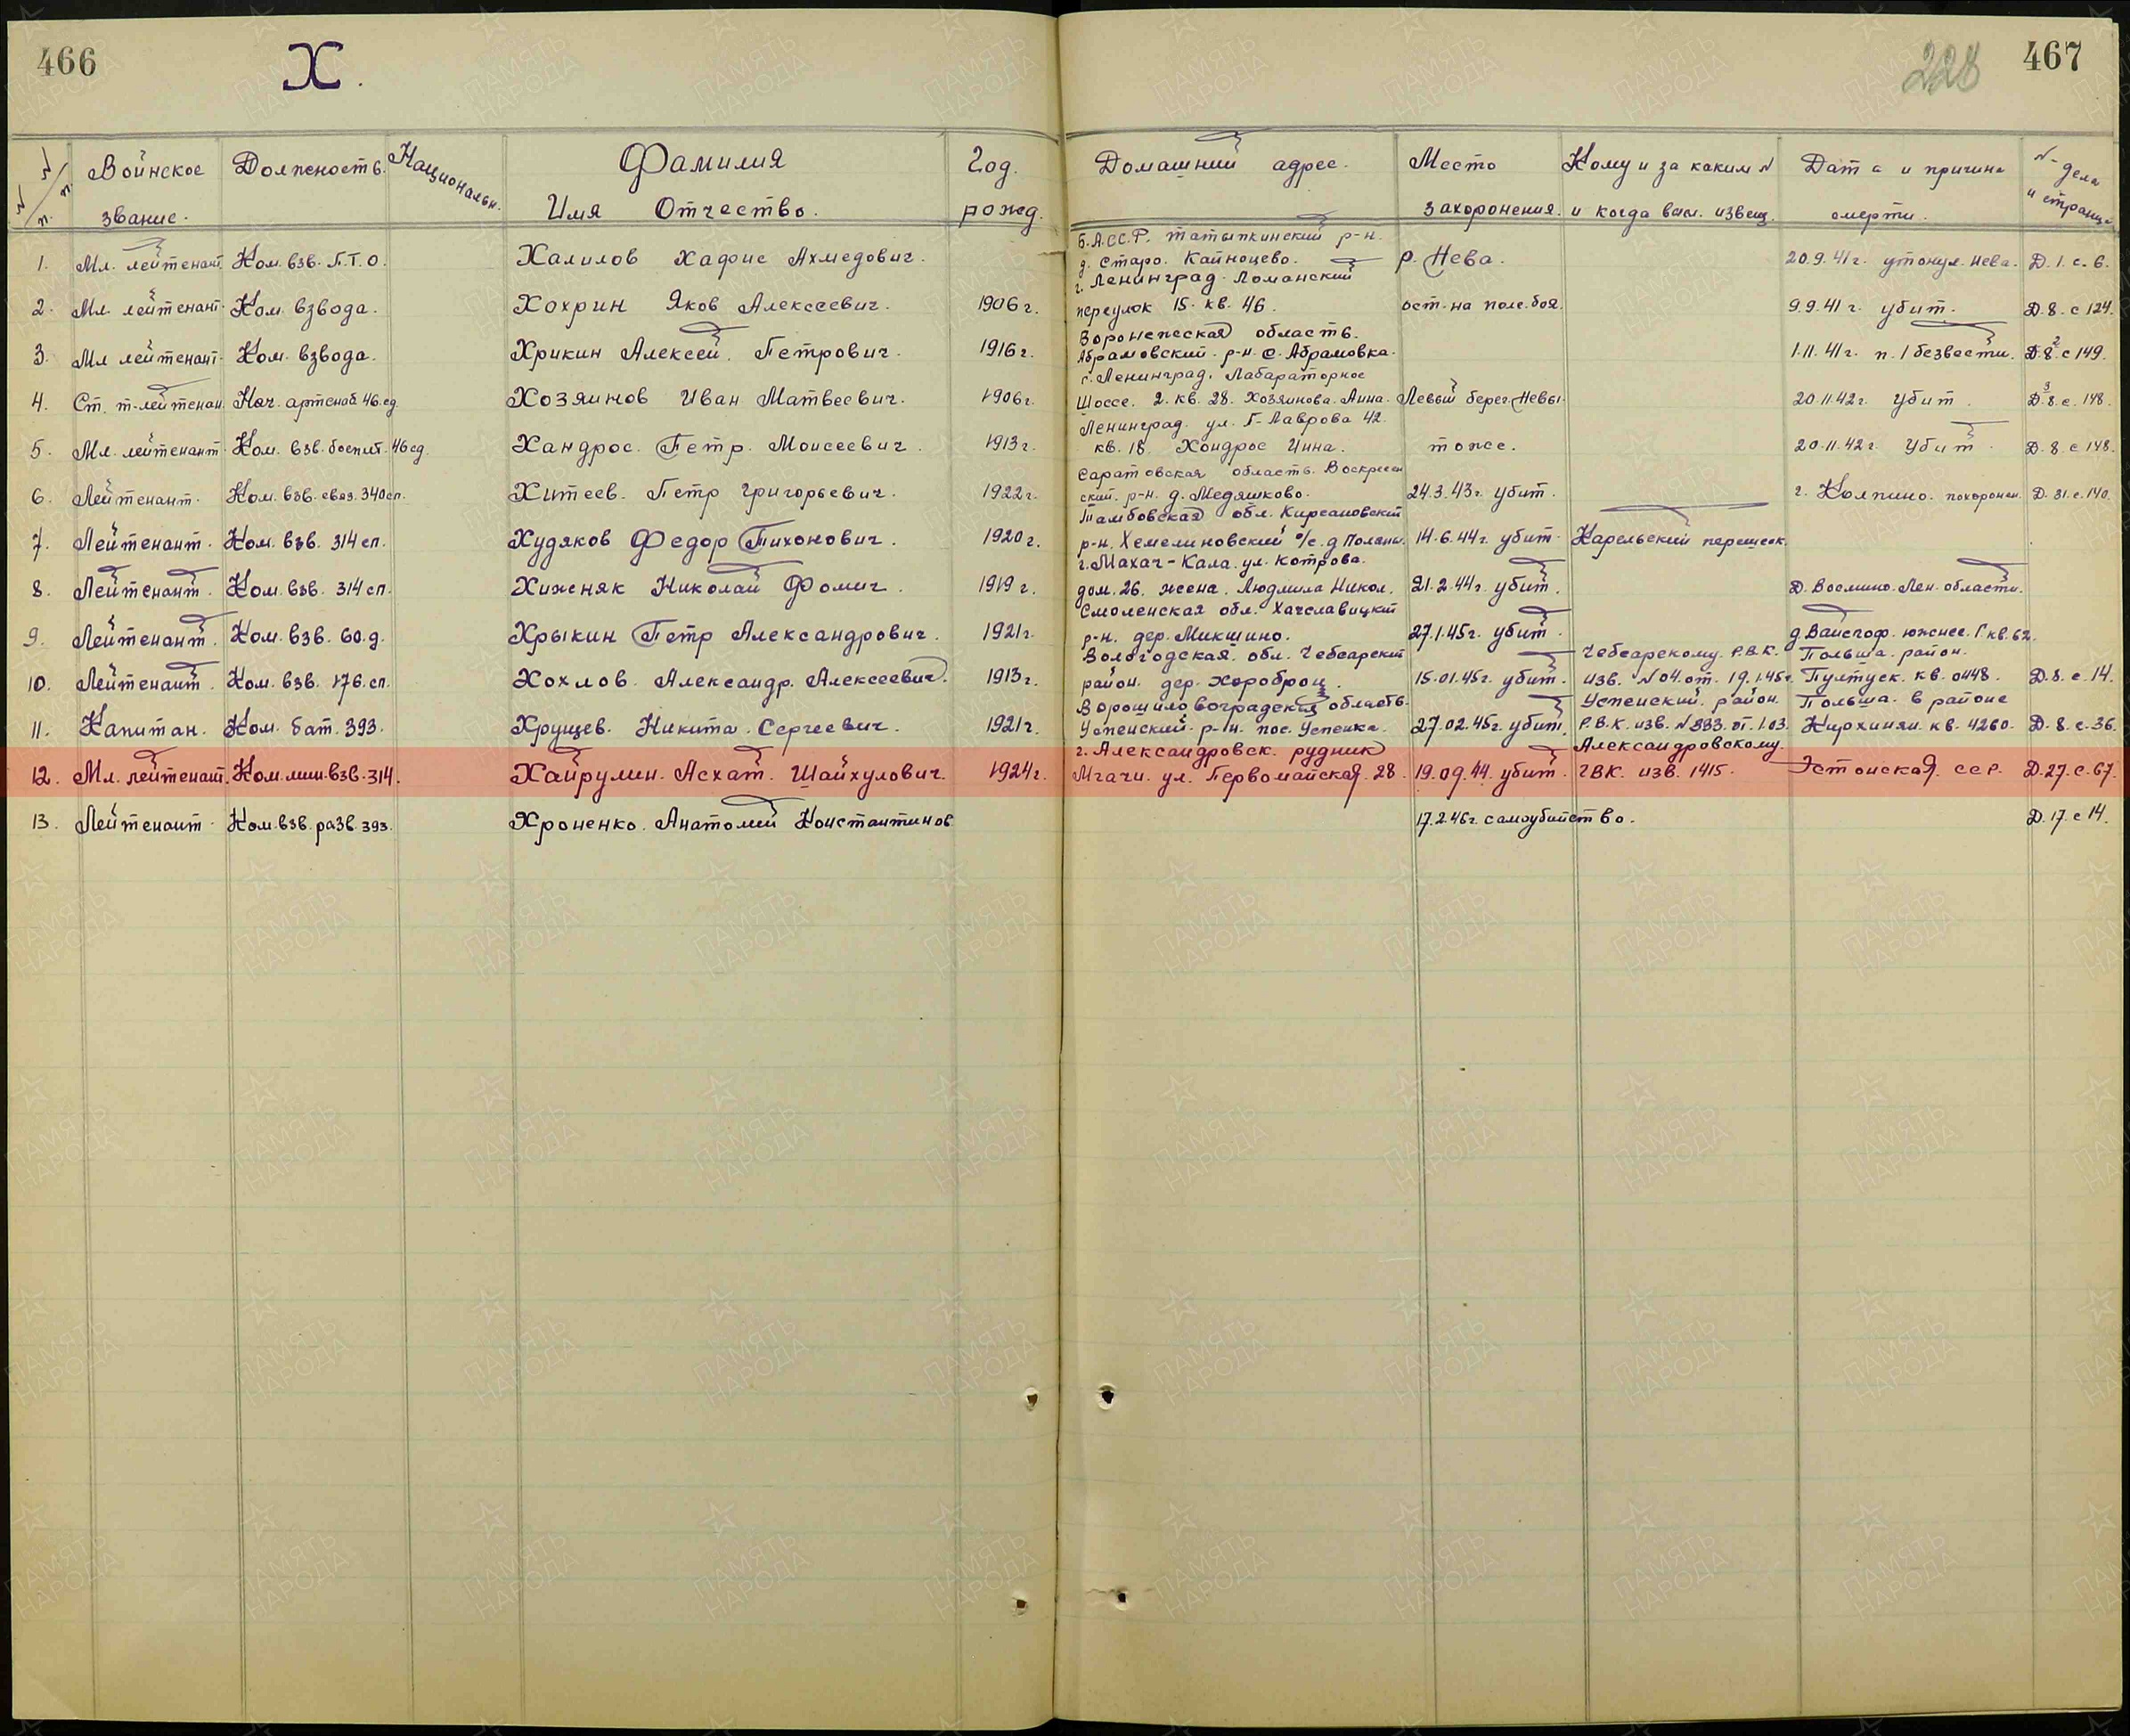 466
Х.
228
467
№ п/п. Воинское звание. Должность. Национальн. Фамилия Имя Отчество. Год. рожд. Домашний адрес. Место захоронения. Кому и за каким № и когда высл. извещ. Дата и причина смерти. № дела и страниц.
Б.А.ССР. Татыпкинский р-н.
1. Мл. лейтенант Ком. взв. П.Т.О. Халилов Хафис Ахмедович. д. Старо. Кайноцево. р. Нева. 20.9.41г. утонул. Нева. Д.1.с.6.
г. Ленинград. Ломанский
2. Мл. лейтенант. Ком. взвода. Хохрин Яков Алексеевич. 1906г. переулок 15. кв. 46. ост. на поле. боя. 9.9.41г. убит. Д.8.с124.
Воронежская область.
3. Мл лейтенант. Ком. взвода. Хрикин Алексей. Петрович. 1916г. Абрамовский. р-н. с. Абрамовка. 1.11.41г. п./безвести. Д.8.²с149.
г. Ленинград. Лабараторное
4. Ст. т-лейтенан. Нач. артснаб. 46.сд Хозяинов Иван Матвеевич. 1906г. Шоссе. 2. кв. 28. Хозяинова. Анна. Левый берег. Невы. 20.11.42г. убит. Д.³8.с.148.
Ленинград. ул. Г-Лаврова 42.
5. Мл. лейтенант. Ком. взв. боепит. 46сд. Хандрос. Петр. Моисеевич. 1913г. кв. 18. Хондрос Инна. тоже. 20.11.42г. Убит. Д.8.с148.
Саратовская область. Воскресен
6. Лейтенант. Ком. взв. связ. 340сп. Хитеев. Петр Григорьевич. 1922г. ский. р-н. д. Медяшково. 24.3.43г. убит. г. Колпино. похоронен. Д.31.с.140.
Тамбовская обл. Кирсановский
7. Лейтенант. Ком. взв. 314сп. Худяков Федор Тихонович. 1920г. р-н. Хемелиновский с/с. д Поляны. 14.6.44г. убит. Карельский перешеек.
г. Махач-Кала. ул. Котрова.
8. Лейтенант. Ком. взв. 314сп. Хижсняк Николай Фомич. 1919г. дом. 26. жена. Людмила Никол. 21.2.44г. убит. Д. Восмино. Лен. области.
Смоленская обл. Хачславицкий
9. Лейтенант. Ком. взв. 60.д. Хрыкин Петр Александрович. 1921г. р-н. дер. Микшино. 27.1.45г. убит. д. Вайсгоф. южнее. 1 кв. 62.
Вологодская. обл. Чебсарский Чебсарскому. Р.В.К. Польша. район.
10. Лейтенант. Ком. взв. 176.сп. Хохлов. Александр. Алексеевич. 1913г. район. дер. Хороброц. 15.01.45г. убит. изв. №04. от. 19.1.45г Пултуск. кв. 0448. Д.8.с.14.
Ворошиловоградская область. Успенский. район. Польша. в районе
11. Капитан. Ком. бат. 393. Хрущев. Никита. Сергеевич. 1921г. Успенский. р-н. пос. Успенка. 27.02.45г. убит. Р.В.К. изв. №393. от. 1.03. Кирхинян. кв. 4260. Д.8.с.36.
г. Александровск. рудник Александровскому.
12. Мл. лейтенант. Ком. мин. взв. 314. Хайрулин. Асхат. Шайхулович. 1924г. Мгачи. ул. Первомайская. 28. 19.09.44. убит. ГВК. изв. 1415. Эстонская. ССР. Д.27.с.67.
13. Лейтенант. Ком. взв. разв. 393. Хроненко. Анатолий Константинов 17.2.46г. самоубийство. Д.17.с14.